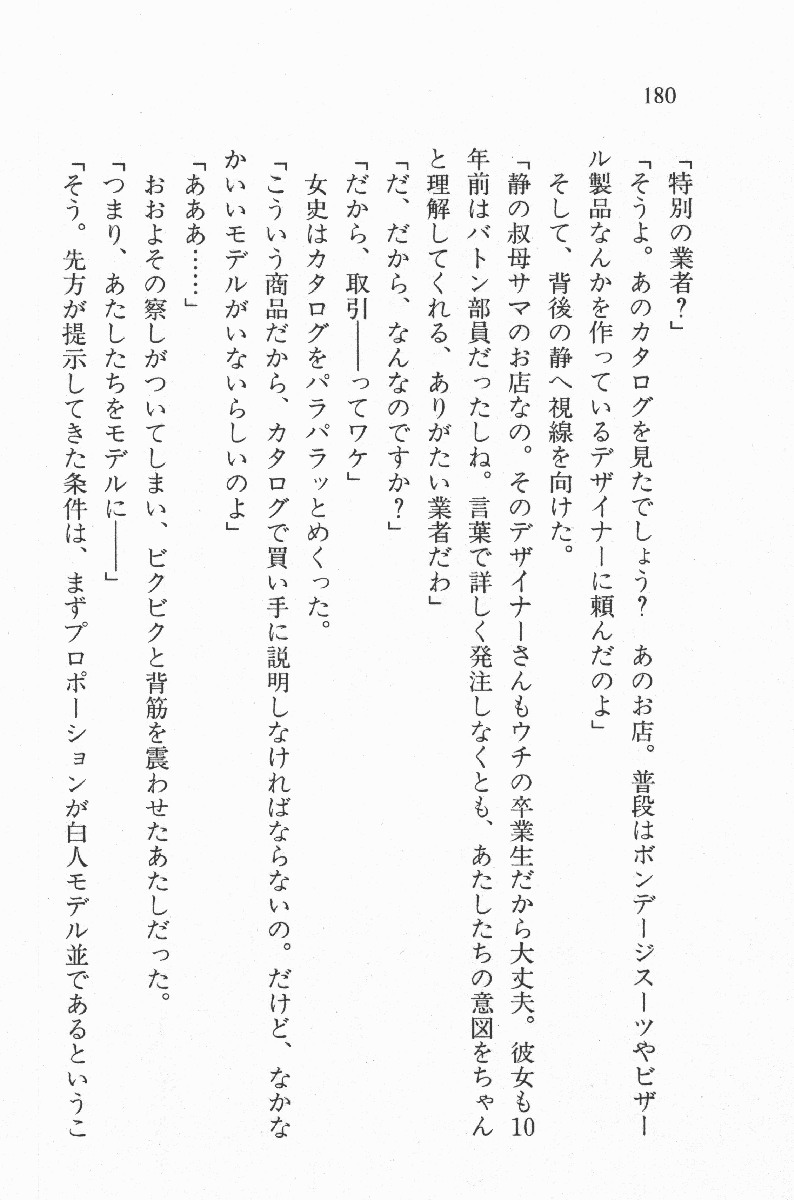 180
「特別の業者？」
「そうよ。あのカタログを見たでしょう？　あのお店。普段はボンデージスーツやビザー
ル製品なんかを作っているデザイナーに頼んだのよ」
　そして、背後の静へ視線を向けた。
「静の叔母サマのお店なの。そのデザイナーさんもウチの卒業生だから大丈夫。彼女も10
年前はバトン部員だったしね。言葉で詳しく発注しなくとも、あたしたちの意図をちゃん
と理解してくれる、ありがたい業者だわ」
「だ、だから、なんなのですか？」
「だから、取引――ってワケ」
　女史はカタログをパラパラッとめくった。
「こういう商品だから、カタログで買い手に説明しなければならないの。だけど、なかな
かいいモデルがいないらしいのよ」
「あああ……」
　おおよその察しがついてしまい、ビクビクと背筋を震わせたあたしだった。
「つまり、あたしたちをモデルに――」
「そう。先方が提示してきた条件は、まずプロポーションが白人モデル並であるというこ